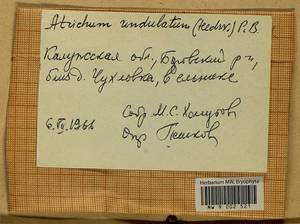 Atrichum undulatum (Hedw.) P.B
Калужская обл., Боровский р-н,
близ д. Чухловка, в ельнике
Собр М.С. Хомутов
6.VII.1961 Опр
Herbarium MW, Bryophyta
MW 9 002 521